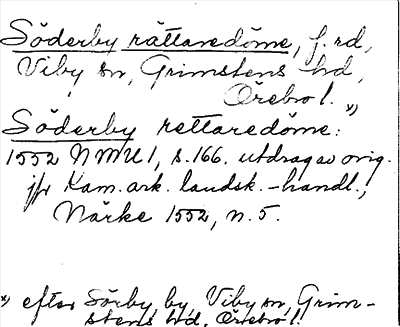 Söderby rättaredöme, f. rd,
Viby sn, Grimstens hd,
Örebro l. x)
Söderby rettaredöme:
1552 NMU 1, s. 166. utdrag av orig.
jfr Kam. ark. landsk.-handl.,
Närke 1552, n. 5.
x) efter Sörby by, Viby sn, Grim-
stens hd, Örebro l.